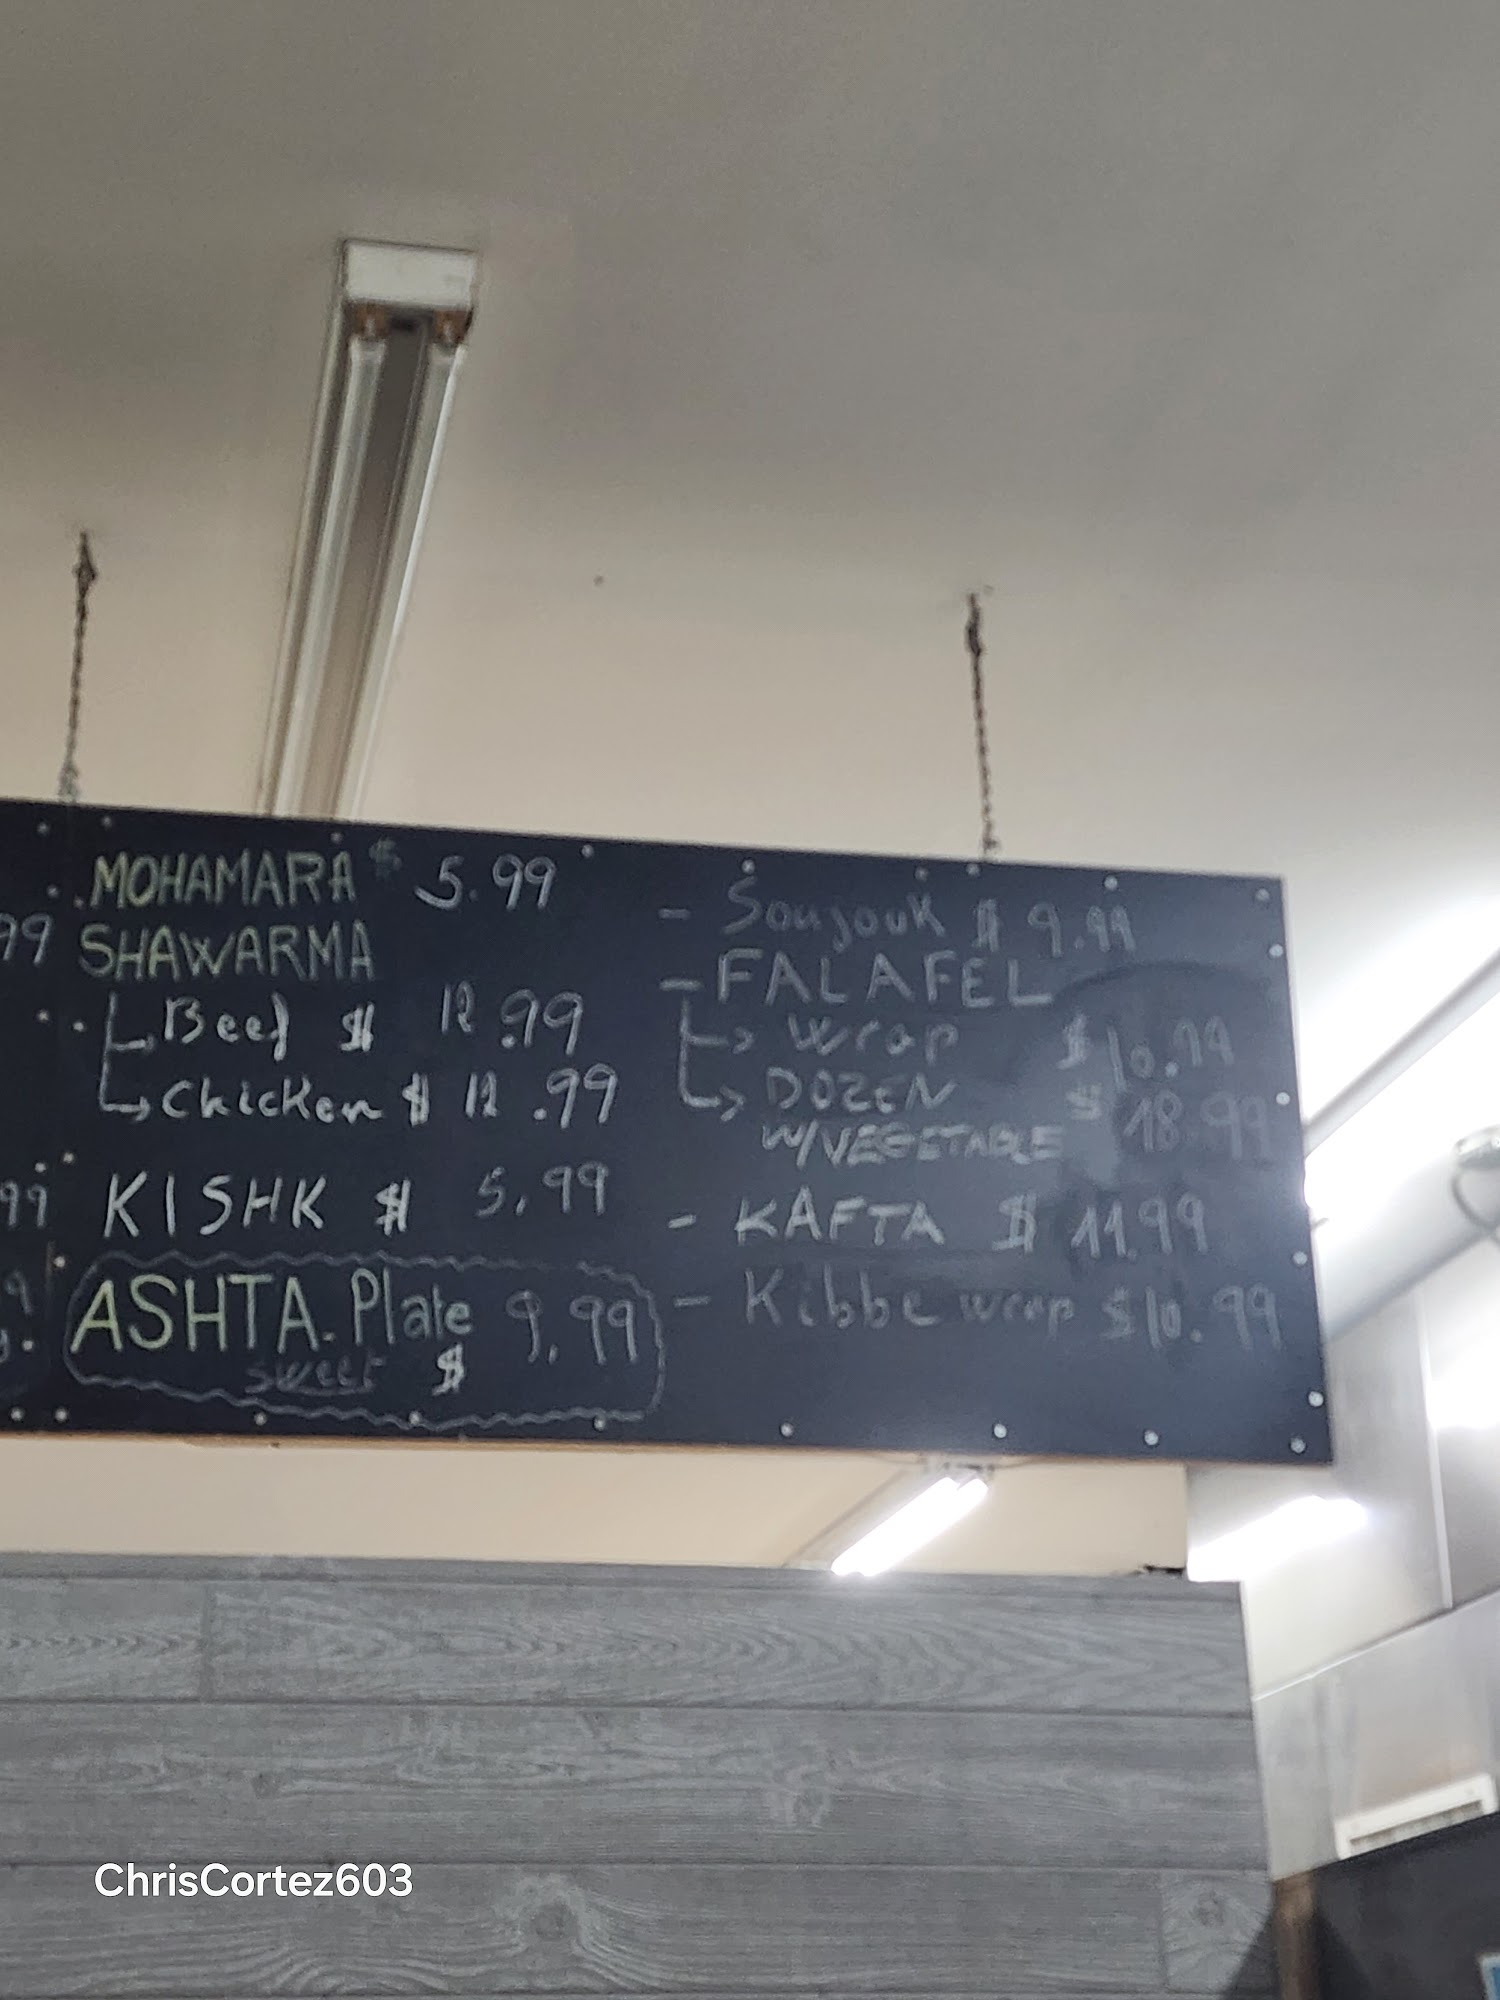 MOHAMARA $ 5.99
99 SHAWARMA
Beef $ 12.99
Chicken $ 12.99
99 KISHK $ 5.99
ASHTA. Plate 9.99
sweet $
- Soujouk $ 9.99
- FALAFEL
Wrap $ 10.99
DOZEN $ 18.99
W/VEGETABLE
- KAFTA $ 11.99
- Kibbe wrap $ 10.99
ChrisCortez603